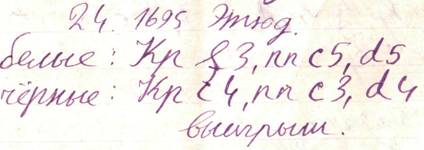 24. 1695 Этюд.
белые: Кр f3, пп c5, d5
чёрные: Кр c4, пп c3, d4
выигрыш.